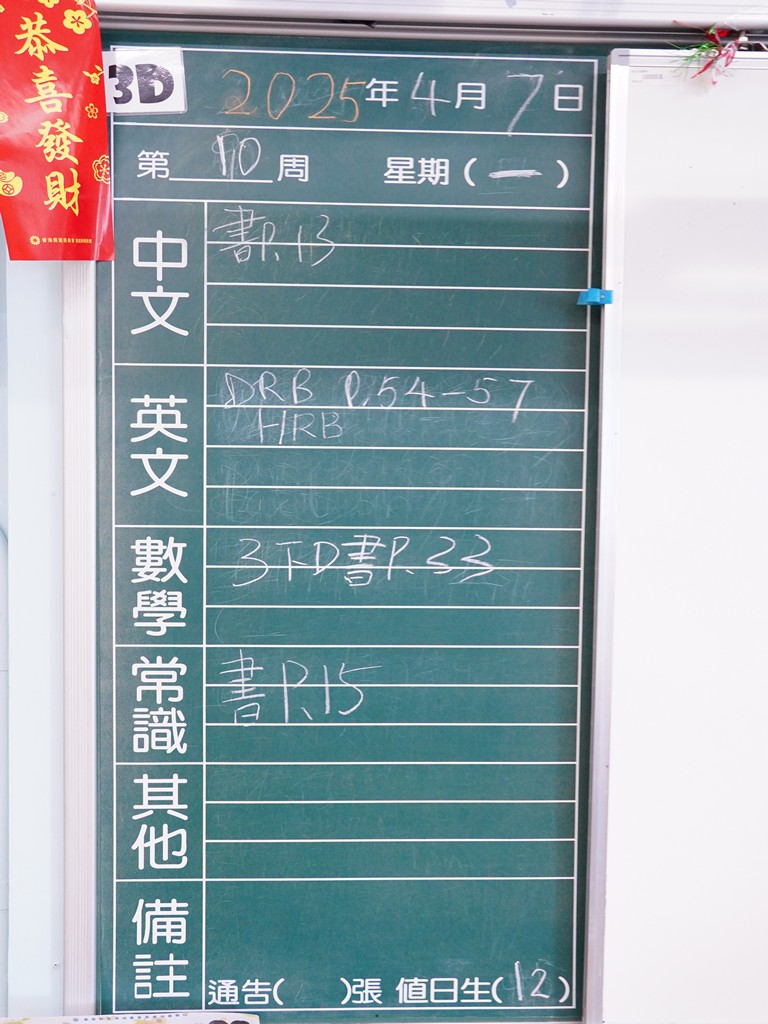 恭喜發財
3D
2025年4月7日
第 10 周 星期(一)
中文
書P.13
英文
DRB P.54-57
HRB
數學
3下D書P.33
常識
書P.15
其他
備註
通告( )張 值日生(12)